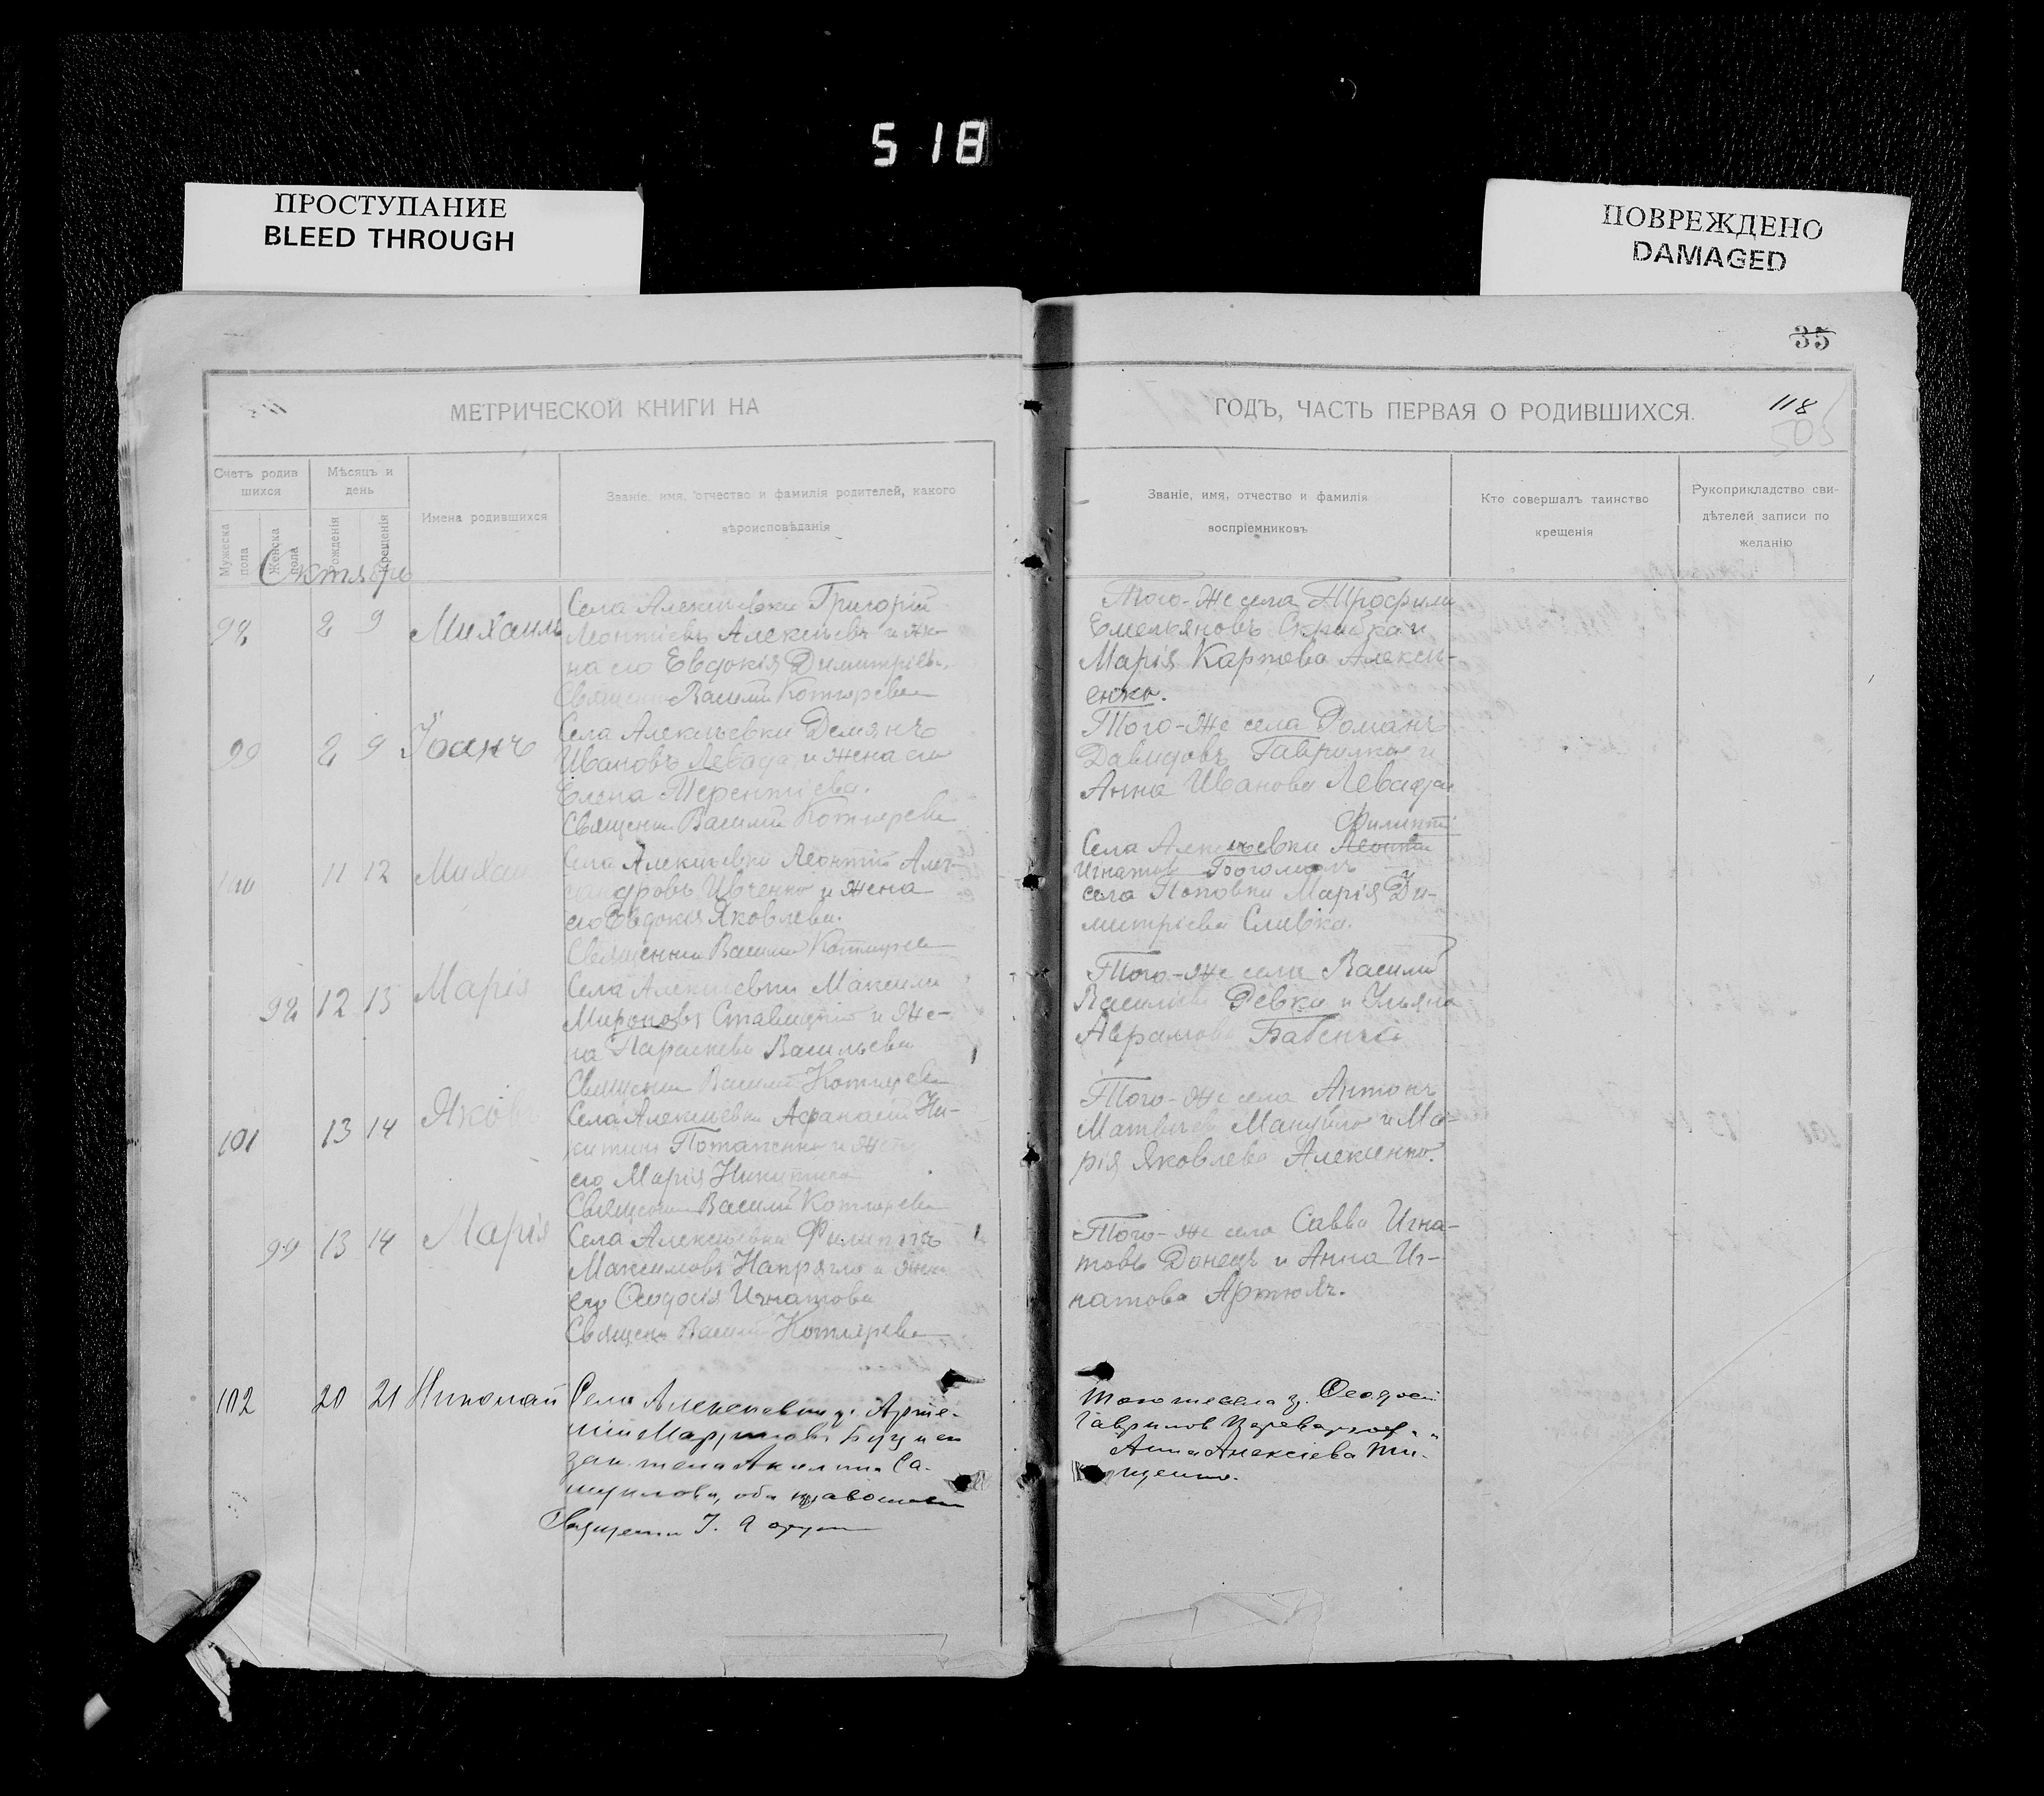 518
ПРОСТУПАНИЕ
BLEED THROUGH
ПОВРЕЖДЕНО
DAMAGED
35
МЕТРИЧЕСКОЙ КНИГИ НА
ГОДЪ, ЧАСТЬ ПЕРВАЯ О РОДИВШИХСЯ.
118
505
Счетъ родив
шихся
Мѣсяцъ и
день
Мужеска
пола
Женска
пола
Рожденія
Крещенія
Имена родившихся
Званіе, имя, отчество и фамилія родителей, какого
вѣроисповѣданія
Званіе, имя, отчество и фамилія
воспріемниковъ
Кто совершалъ таинство
крещенія
Рукоприкладство сви-
дѣтелей записи по
желанію
Октябрь
98 2 9 Михаилъ
Села Алексѣевки Григорій
Леонтіевъ Алексѣевъ и же-
на его Евдокія Димитріев.
Священ Василій Котляревск
Того-же села Трофимъ
Емельяновъ Скрипка и
Марія Карпова Алексѣ-
енко.
99 2 9 Іоаннъ
Села Алексѣевки Демянъ
Ивановъ Левада и жена его
Елена Терентіева.
Священ Василій Котляревск
Того-же села Романъ
Давидовъ Гаврилко и
Анна Иванова Левадая
100 11 12 Михаи
Села Алексѣевки Леонтій Алек-
сандровъ Ивченко и жена
его Евдокія Яковлева.
Священник Василій Котляревск
Филиппъ
Села Алексѣевки Леонтій
Игнатов Богомолъ
села Поповки Марія Ди-
митріева Сливка.
98 12 13 Марія
Села Алексѣевки Максимъ
Мироновъ Ставицкій и же-
на Параскева Васильева
Священ Василій Котляревск
Того-же села Василій
Васильев Девка и Ульяна
Аврамова Бабенко
101 13 14 Яковъ
Села Алексѣевки Афанасій Ни-
китинъ Потапенко и жена
его Марія Никитина
Священ Василій Котляревск
Того-же села Антонъ
Матвѣев Мануйло и Ма-
рія Яковлева Алексѣенко.
99 13 14 Марія
Села Алексѣевки Филиппъ
Максимовъ Напрягло и жена
его Ѳеодосія Игнатова
Священ Василій Котляревск
Того-же села Савва Игна-
товъ Донецъ и Анна Иг-
натова Артюхъ.
102 20 21 Николай
Села Алексѣевки гр. Арте-
мій и его
зак. жена Акилина Са-
муилова, оба православн
Священн І.
того же села гр. Ѳеодосій
Гаврилов
Анна Алексіева Ти-
щенко.